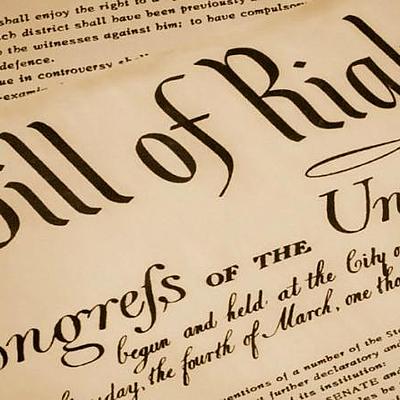 shall enjoy the right to a
ich district shall have been previously
the witnesses against him; to have compulsor
defence.
ue in controversy shall
-exami
Bill of Righ
ongreſs OF THE Un
begun and held at the City o
day, the fourth of March, one tho
ventions of a number of the Sta
further declaratory and
its institution:
SENATE and